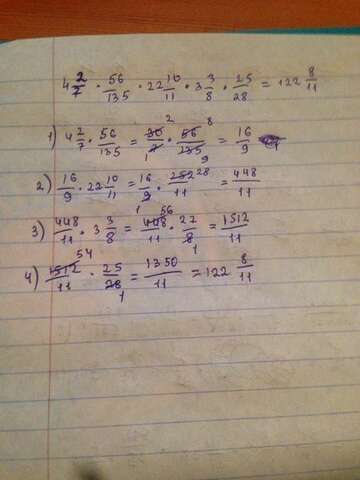 4 2/7 · 56/135 · 22 10/11 · 3 3/8 · 25/28 = 122 8/11
1) 4 2/7 · 56/135 = 30/7 1 2 · 56/135 8 9 = 16/9
2) 16/9 · 22 10/11 = 16/9 · 252/11 28 = 448/11
3) 448/11 · 3 3/8 = 1 448/11 56 · 27/8 1 = 1512/11
4) 1512/11 54 · 25/28 1 = 1350/11 = 122 8/11